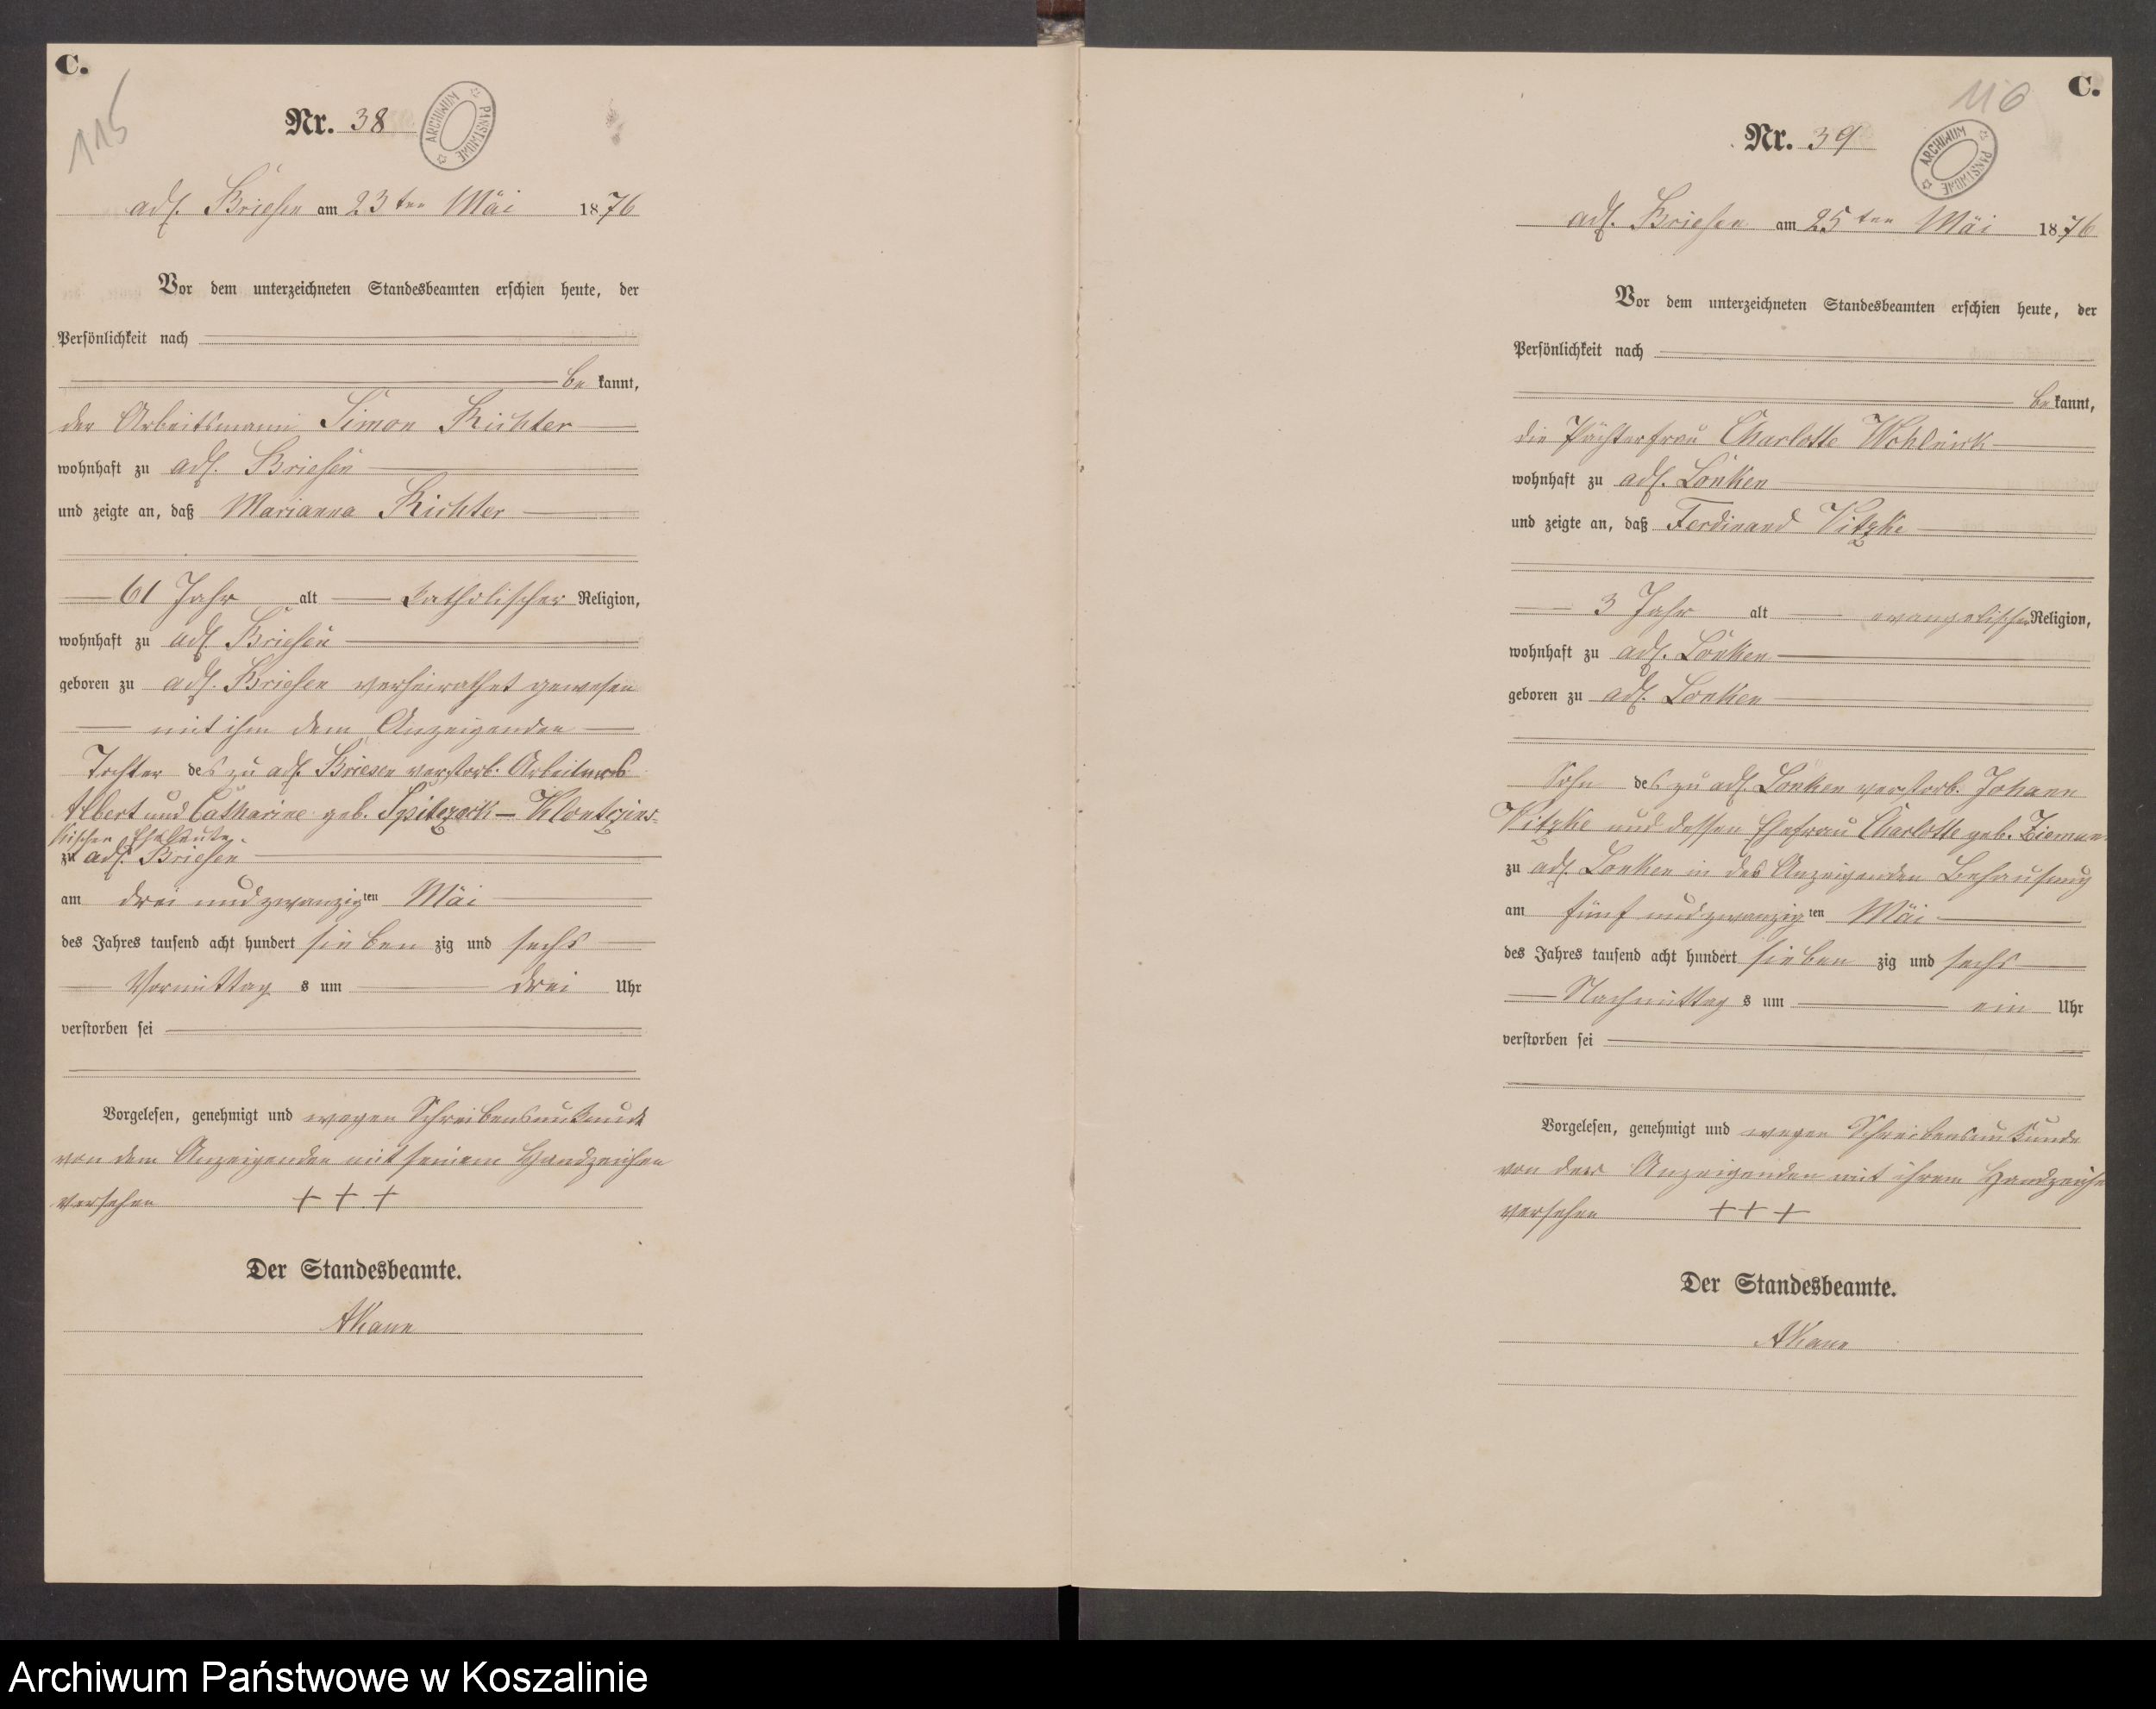 C.
115
Nr. 38
ARCHIWUM PAŃSTWOWE
adl. Briesen am 23ten Mai 1876
Vor dem unterzeichneten Standesbeamten erschien heute, der
Persönlichkeit nach
be kannt,
der Arbeitsmann Simon Richter
wohnhaft zu adl. Briesen
und zeigte an, daß Marianna Richter
61 Jahr alt katholischer Religion,
wohnhaft zu adl Briesen
geboren zu adl. Briesen verheirathet gewesen
mit ihm dem Anzeigenden
Tochter des zu adl. Briesen verstorb. Arbeiters
Albert und Catharine geb.
schen Eheleute
zu adl. Briesen
am drei und zwanzigten Mai
des Jahres tausend acht hundert sieben zig und sechs
Vormittag s um drei Uhr
verstorben sei
Vorgelesen, genehmigt und wegen Schreibensunkunde
von dem Anzeigenden mit seinem Handzeichen
versehen + + +
Der Standesbeamte.
C.
116
Nr. 39
ARCHIWUM PAŃSTWOWE
adl. Briesen am 25ten Mai 1876
Vor dem unterzeichneten Standesbeamten erschien heute, der
Persönlichkeit nach
be kannt,
die Pächterfrau Charlotte
wohnhaft zu adl. Lonken
und zeigte an, daß Ferdinand Vitzke
3 Jahr alt evangelischer Religion,
wohnhaft zu adl. Lonken
geboren zu adl. Lonken
Sohn des zu adl. Lonken verstorb. Johann
Vitzke und dessen Ehefrau Charlotte geb.
zu adl. Lonken in des Anzeigenden Behausung
am fünf und zwanzigten Mai
des Jahres tausend acht hundert sieben zig und sechs
Nachmittag s um ein Uhr
verstorben sei
Vorgelesen, genehmigt und wegen Schreibensunkunde
von der Anzeigenden mit ihrem Handzeichen
versehen + + +
Der Standesbeamte.
Archiwum Państwowe w Koszalinie